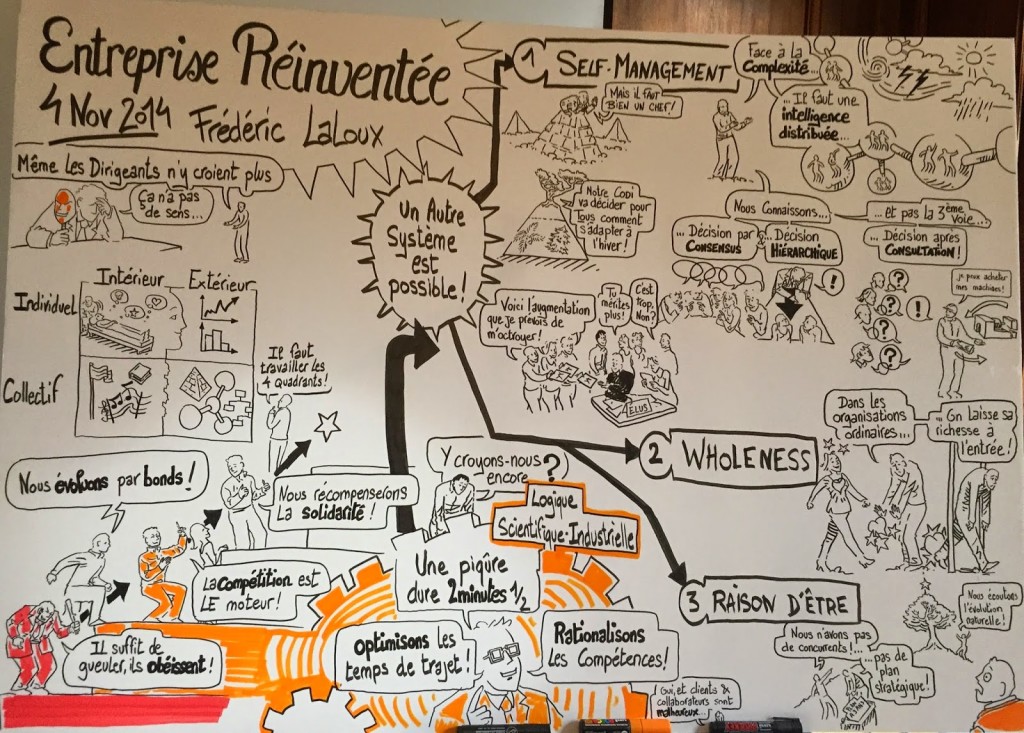 Entreprise Réinventée
4 Nov 2014 Frédéric Laloux
Même les Dirigeants n'y croient plus
Ça n'a pas
de sens...
Intérieur
Extérieur
Individuel
Collectif
Il faut
travailler les
4 quadrants!
Nous évoluons par bonds!
Il suffit de
gueuler, ils obéissent!
La compétition est
LE moteur!
Nous récompenserons
La solidarité!
Y croyons-nous
encore ?
Logique
Scientifique-Industrielle
Une piqûre
dure 2 minutes 1/2
optimisons les
temps de trajet!
Rationalisons
Les Compétences!
Oui, et clients &
collaborateurs sont
malheureux...
Un Autre
Système
est
possible!
1 SELF-MANAGEMENT
Mais il faut
BIEN UN CHEF!
Face à la
Complexité...
... Il faut une
intelligence
distribuée...
Notre CODI
va décider pour
Tous comment
s'adapter à
l'hiver!
Nous Connaissons...
... Décision par
CONSENSUS
... Décision
HIÉRARCHIQUE
!
... Et pas la 3ème
Voie...
... Décision après
CONSULTATION!
?
?
?
?
!
je peux acheter
mes machines!
Voici l'augmentation
que je prévois de
m'octroyer!
Tu
mérites
plus!
C'est
trop,
Non?
ELUS
2 WHOLENESS
Dans les
organisations
ordinaires...
... On laisse sa
richesse à
l'entrée!
3 RAISON D'ÊTRE
Nous écoutons
l'évolution
naturelle!
Nous n'avons pas
de concurrents!...
...pas de
plan
stratégique!